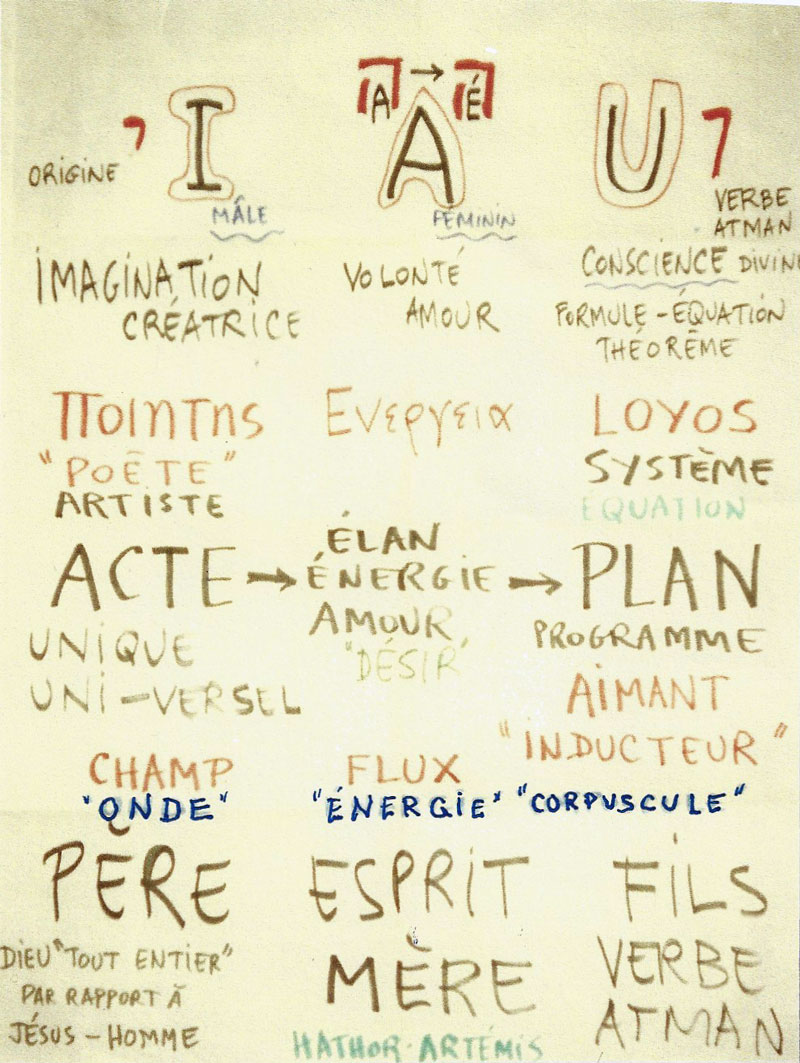 A → É
I A U
ORIGINE
MÂLE FÉMININ VERBE
ATMAN
IMAGINATION VOLONTÉ CONSCIENCE DIVINE
CRÉATRICE AMOUR FORMULE - ÉQUATION
THÉORÊME
Ποιητης Ενεργεια LOγOS
"POÊTE" SYSTÈME
ARTISTE EQUATION
ÉLAN
ACTE → ÉNERGIE → PLAN
UNIQUE AMOUR PROGRAMME
"DÉSIR"
UNI-VERSEL AIMANT
"INDUCTEUR"
CHAMP FLUX
"ONDE" "ÉNERGIE" "CORPUSCULE"
PÈRE ESPRIT FILS
DIEU "TOUT ENTIER" MÈRE VERBE
PAR RAPPORT À
JÉSUS-HOMME HATHOR-ARTÉMIS ATMAN